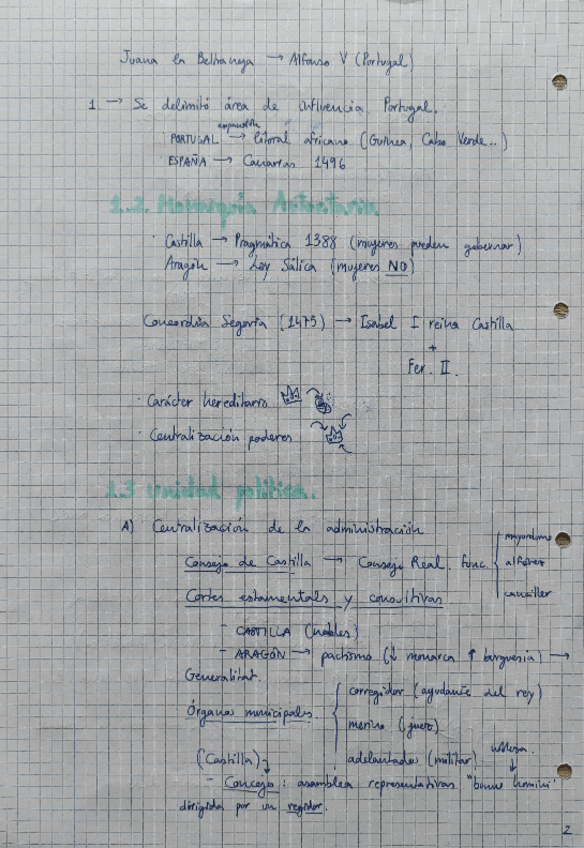 Juana la Beltraneja → Alfonso V (Portugal)
1. → Se delimitó área de influencia Portugal.
expansión
PORTUGAL → litoral africano (Guinea, Cabo Verde..)
ESPAÑA → Canarias 1496
1.2. Monarquía Autoritaria
· Castilla → Pragmática 1388 (mujeres pueden gobernar)
Aragón → Ley Sálica (mujeres NO)
Concordia Segovia (1475) → Isabel I reina Castilla
+
Fer. II.
· Carácter hereditario
· Centralización poderes
1.3 Unidad política.
A) Centralización de la administración
Consejo de Castilla → Consejo Real. func.
mayordomo
alférez
canciller
Cortes estamentals y consultivas
- CASTILLA (nobles)
- ARAGÓN → pactismo (↓ monarca ↑ burguesía) →
Generalitat.
Órganos municipales.
corregidor (ayudante del rey)
merino (juez)
adelantados (militar)
(Castilla)
- Concejo: asamblea representativas "bonus homini"
dirigida por un regidor.
2